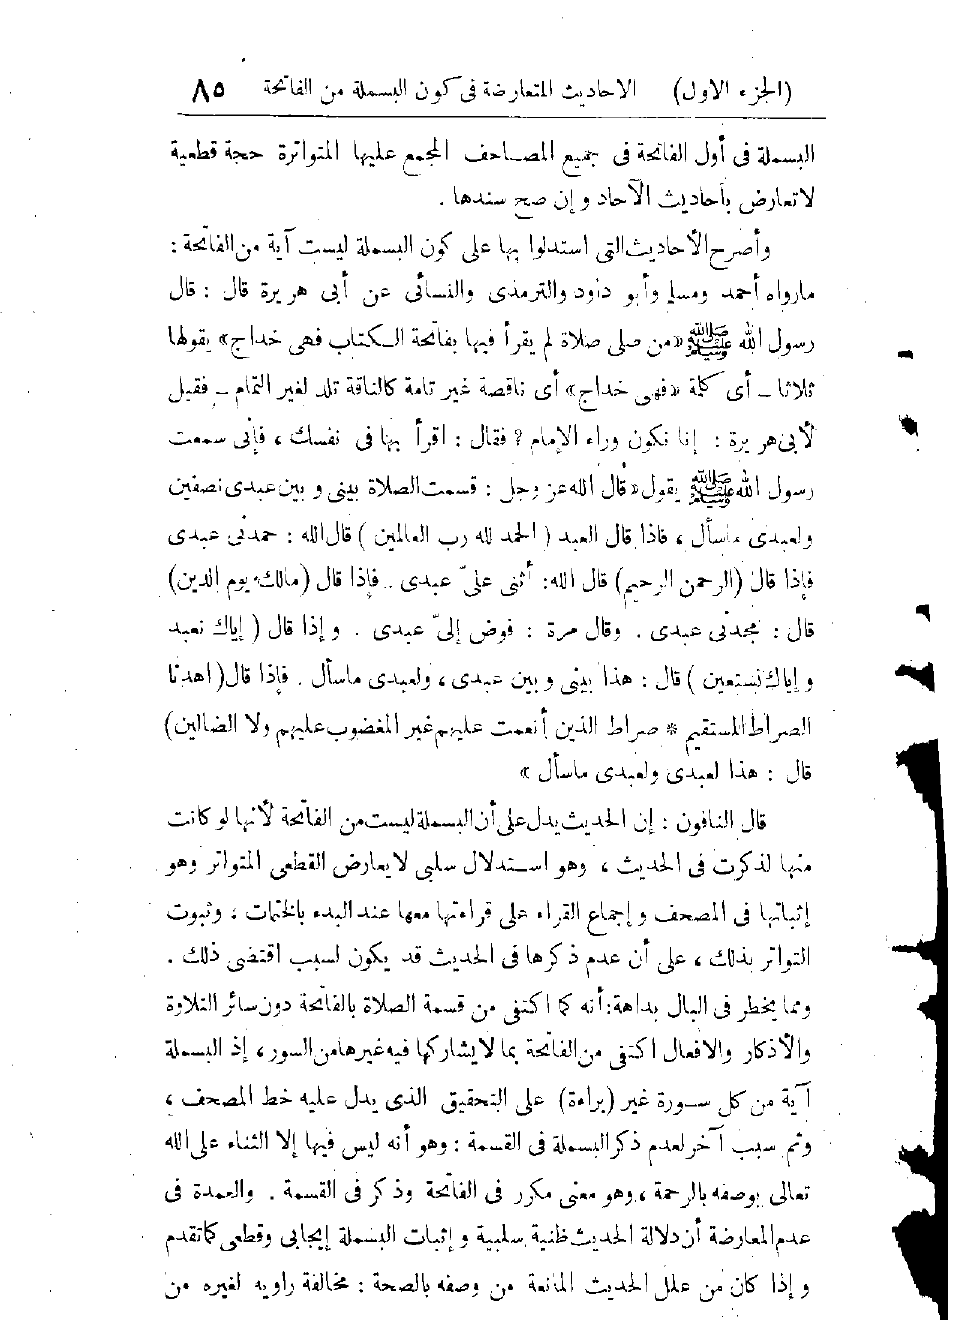 (الجزء الاول) الاحاديث المتعارضة فى كون البسملة من الفاتحة ٨٥
البسملة فى أول الفاتحة فى جميع المصاحف المجمع عليها المتواترة حجة قطعية
لا تعارض بأحاديث الآحاد و إن صح سندها .
وأصرح الأحاديث التى استدلوا بها على كون البسملة ليست آية من الفاتحة :
مارواه أحمد ومسلم وأبو داود والترمذى والنسائى عن أبى هريرة قال : قال
رسول الله ﷺ «من صلى صلاة لم يقرأ فيها بفاتحة الكتاب فهى خداج» يقولها
ثلاثا – أى كلمة «فهى خداج» أى ناقصة غير تامة كالناقة تلد لغير التمام – فقيل
لأبى هريرة : إنا نكون وراء الإمام ? فقال : اقرأ بها فى نفسك ، فإنى سمعت
رسول الله ﷺ يقول «قال الله عز وجل : قسمت الصلاة بينى و بين عبدى نصفين
ولعبدى ماسأل ، فاذا قال العبد ( الحمد لله رب العالمين ) قال الله : حمدنى عبدى
فإذا قال (الرحمن الرحيم) قال الله: أثنى علىّ عبدى . فإذا قال (مالك يوم الدين)
قال : مجدنى عبدى . وقال مرة : فوض إلىّ عبدى . و إذا قال ( إياك نعبد
و إياك نستعين ) قال : هذا بينى و بين عبدى ، ولعبدى ماسأل . فإذا قال( اهدنا
الصراط المستقيم * صراط الذين أنعمت عليهم غير المغضوب عليهم ولا الضالين)
قال : هذا لعبدى ولعبدى ماسأل »
قال النافون : إن الحديث يدل على أن البسملة ليست من الفاتحة لأنها لو كانت
منها لذكرت فى الحديث ، وهو استدلال سلبى لا يعارض القطعى المتواتر وهو
إثباتها فى المصحف و إجماع القراء على قراءتها معها عند البدء بالختمات ، وثبوت
التواتر بذلك ، على أن عدم ذكرها فى الحديث قد يكون لسبب اقتضى ذلك .
ومما يخطر فى البال بداهة: أنه كما اكتفى من قسمة الصلاة بالفاتحة دون سائر التلاوة
والأذكار والافعال اكتفى من الفاتحة بما لا يشاركها فيه غيرها من السور ، إذ البسملة
آية من كل سورة غير (براءة) على التحقيق الذى يدل عليه خط المصحف ،
وثم سبب آخر لعدم ذكر البسملة فى القسمة : وهو أنه ليس فيها إلا الثناء على الله
تعالى بوصفه بالرحمة ، وهو معنى مكرر فى الفاتحة وذكر فى القسمة . والعمدة فى
عدم المعارضة أن دلالة الحديث ظنية سلبية و إثبات البسملة إيجابى وقطعى كما تقدم
و إذا كان من علل الحديث المانعة من وصفه بالصحة : مخالفة راويه لغيره من